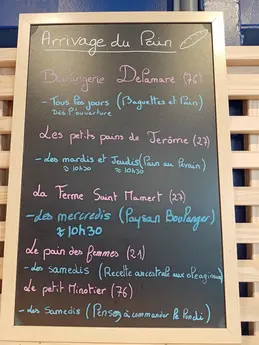 Arrivage du Pain
Boulangerie Delamare (76)
- Tous les jours (Baguettes et Pain)
Dès l'ouverture
Les petits pains de Jerôme (27)
- Les mardis et Jeudis (Pain au levain)
≈ 10h30 ≈ 10h30
La Ferme Saint Mamert (27)
- Les mercredis (Paysan Boulanger)
≈ 10h30
Le pain des femmes (21)
- Les samedis (Recette ancestrale aux oleagineux)
Le petit Minotier (76)
- Les samedis (Pensez à commander le lundi)